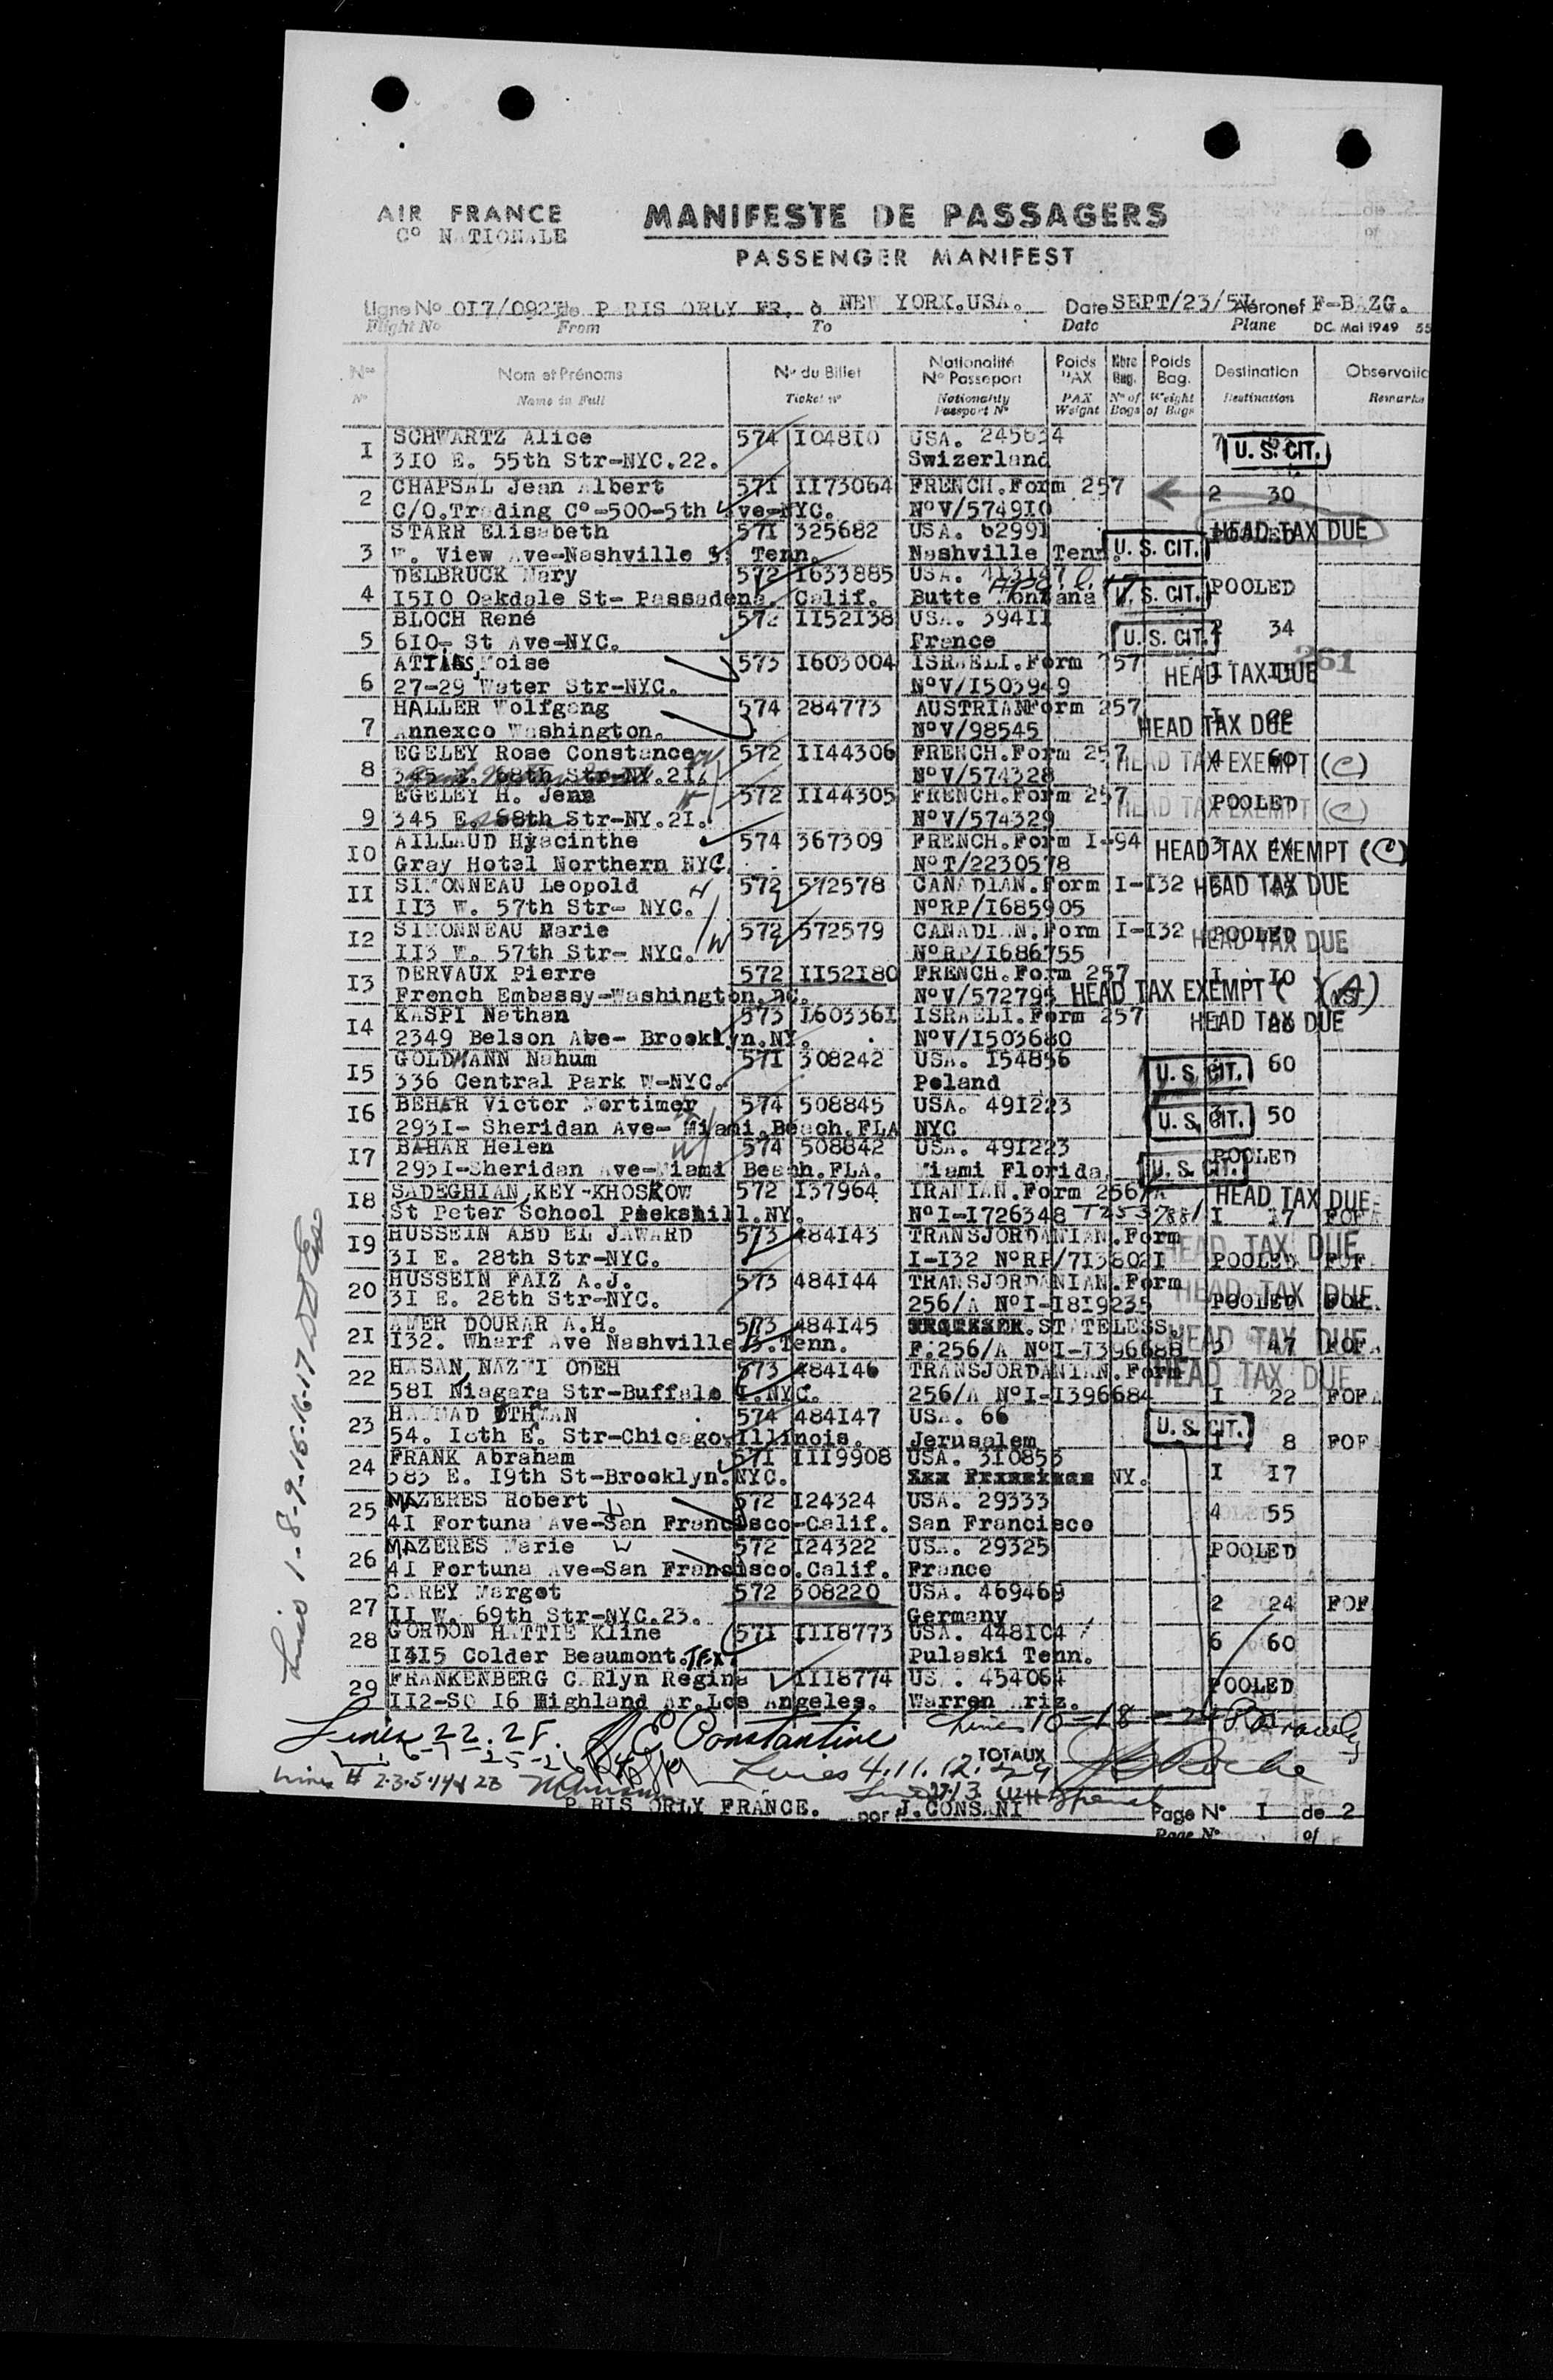 AIR FRANCE
Cº NATIONALE
MANIFESTE DE PASSAGERS
PASSENGER MANIFEST
Ligne Nº OI7/092 de PARIS ORLY FR. à NEW YORK.USA. Date SEPT/23/5 Aéronef F-BAZG.
Flight Nº From To Date Plane DC Mai 1949 55
Nos Nom et Prénoms Nº du Billet Nationalité Nº Passeport Poids PAX Nbre Bag. Poids Bag. Destination Observatio
Nº Name in Full Ticket nº Nationality Passport Nº PAX Weight Nº of Bags Weight of Bags Destination Remarks
I SCHWARTZ Alice 574 I048I0 USA. 245634 7 U. S. CIT.
3I0 E. 55th Str-NYC.22. Swizerland
2 CHAPSAL Jean Albert 57I II73064 FRENCH.Form 257 2 30
C/O.Trading Cº-500-5th Ave-NYC. NºV/5749I0
HEAD TAX DUE
3 STARR Elisabeth 57I 325682 USA. 62991 POOLED
W. View Ave-Nashville Tenn. Nashville Tenn. U. S. CIT.
4 DELBRUCK Mary 572 I633885 USA. POOLED
I5I0 Oakdale St- Passadena. Calif. Butte Montana U. S. CIT.
5 BLOCH René 572 II52I38 USA. 394II 34
6I0- St Ave-NYC. France U. S. CIT.
261
6 ATTIAS Moise 573 I603004 ISRAELI.Form 257 HEAD TAX DUE
27-29 Water Str-NYC. NºV/I503949
7 HALLER Wolfgang 574 284773 AUSTRIANForm 257 HEAD TAX DUE
Annexco Washington. NºV/98545
8 EGELEY Rose Constance W 572 II44306 FRENCH.Form 257 4 60 HEAD TAX EXEMPT (C)
345 E. 68th Str-NY.2I. NºV/574328
9 EGELEY H. Jean H 572 II44305 FRENCH.Form 257 POOLED HEAD TAX EXEMPT (C)
345 E. 68th Str-NY.2I. NºV/574329
I0 AILLAUD Hyacinthe 574 367309 FRENCH.Form I-94 3 44 HEAD TAX EXEMPT (C)
Gray Hotel Northern NYC. NºT/2230578
II SIMONNEAU Leopold H 572 572578 CANADIAN.Form I-I32 HEAD TAX DUE
II3 W. 57th Str- NYC. NºRP/I685905
I2 SIMONNEAU Marie W 572 572579 CANADIAN.Form I-I32 POOLED HEAD TAX DUE
II3 W. 57th Str- NYC. NºRP/I686755
I3 DERVAUX Pierre 572 II52I80 FRENCH.Form 257 I I0
French Embassy-Washington.DC. NºV/572795 HEAD TAX EXEMPT (A)
I4 KASPI Nathan 573 I60336I ISRAELI.Form 257 HEAD TAX DUE
2349 Belson Ave- Brooklyn.NY. NºV/I503680
I5 GOLDMANN Nahum 57I 308242 USA. I54856 U. S. CIT. 60
336 Central Park W-NYC. Poland
I6 BEHAR Victor Mortimer 574 508845 USA. 49I223 U. S. CIT. 50
293I- Sheridan Ave- Miami.Beach.FLA NYC
I7 BAHAR Helen W 574 508842 USA. 49I223 POOLED
293I-Sheridan Ave-Miami Beach.FLA. Miami Florida. U. S. CIT.
I8 SADEGHIAN,KEY-KHOSROW 572 I37964 IRANIAN.Form 256/A HEAD TAX DUE
St Peter School Peekskill.NY. NºI-I726348 I 27 FOF
I9 HUSSEIN ABD EL JAWARD 573 484I43 TRANSJORDANIAN.Form HEAD TAX DUE
3I E. 28th Str-NYC. I-I32 NºRP/7I3802I POOLED FOF
20 HUSSEIN FAIZ A.J. 573 484I44 TRANSJORDANIAN.Form HEAD TAX DUE
3I E. 28th Str-NYC. 256/A NºI-I8I9235 POOLED FOF
2I AMER DOURAR A.H. 573 484I45 STATELESS. HEAD TAX DUE
I32. Wharf Ave Nashville Tenn. F.256/A NºI-I396688 3 47 FOF
22 HASAN NAZMI ODEH 573 484I46 TRANSJORDANIAN.Form HEAD TAX DUE
58I Niagara Str-Buffalo I.NYC. 256/A NºI-I396684 I 22 FOF
23 HAMMAD OTHMAN 574 484I47 USA. 66 U. S. CIT.
54. I8th E. Str-Chicago.Illinois. Jerusalem I 8 FOF
24 FRANK Abraham 57I III9908 USA. 3I0853 I I7
383 E. I9th St-Brooklyn.NYC. NY.
25 MAZERES Robert 572 I24324 USA. 29333 4 55
4I Fortuna Ave-San Francisco-Calif. San Francisco
26 MAZERES Marie W 572 I24322 USA. 29325 POOLED
4I Fortuna Ave-San Francisco.Calif. France
27 CAREY Margot 572 308220 USA. 469469 2 24 FOF
II W. 69th Str-NYC.23. Germany
28 GORDON HATTIE Kline 57I III8773 USA. 448I04 6 60
I4I5 Colder Beaumont.TEX Pulaski Tenn.
29 FRANKENBERG CARlyn Regina III8774 USA. 454064 POOLED
II2-SO I6 Highland Ar.Los Angeles. Warren Ariz.
Lines 1-8-9-15-16-17
Lines 22.25. Constantine Lines 10-18-24
Lines 4.11.12.29 TOTAUX Roche
Lines # 2.3.5.14 & 28
PARIS ORLY FRANCE. par J.CONSANI Page Nº I de 2
Page Nº of